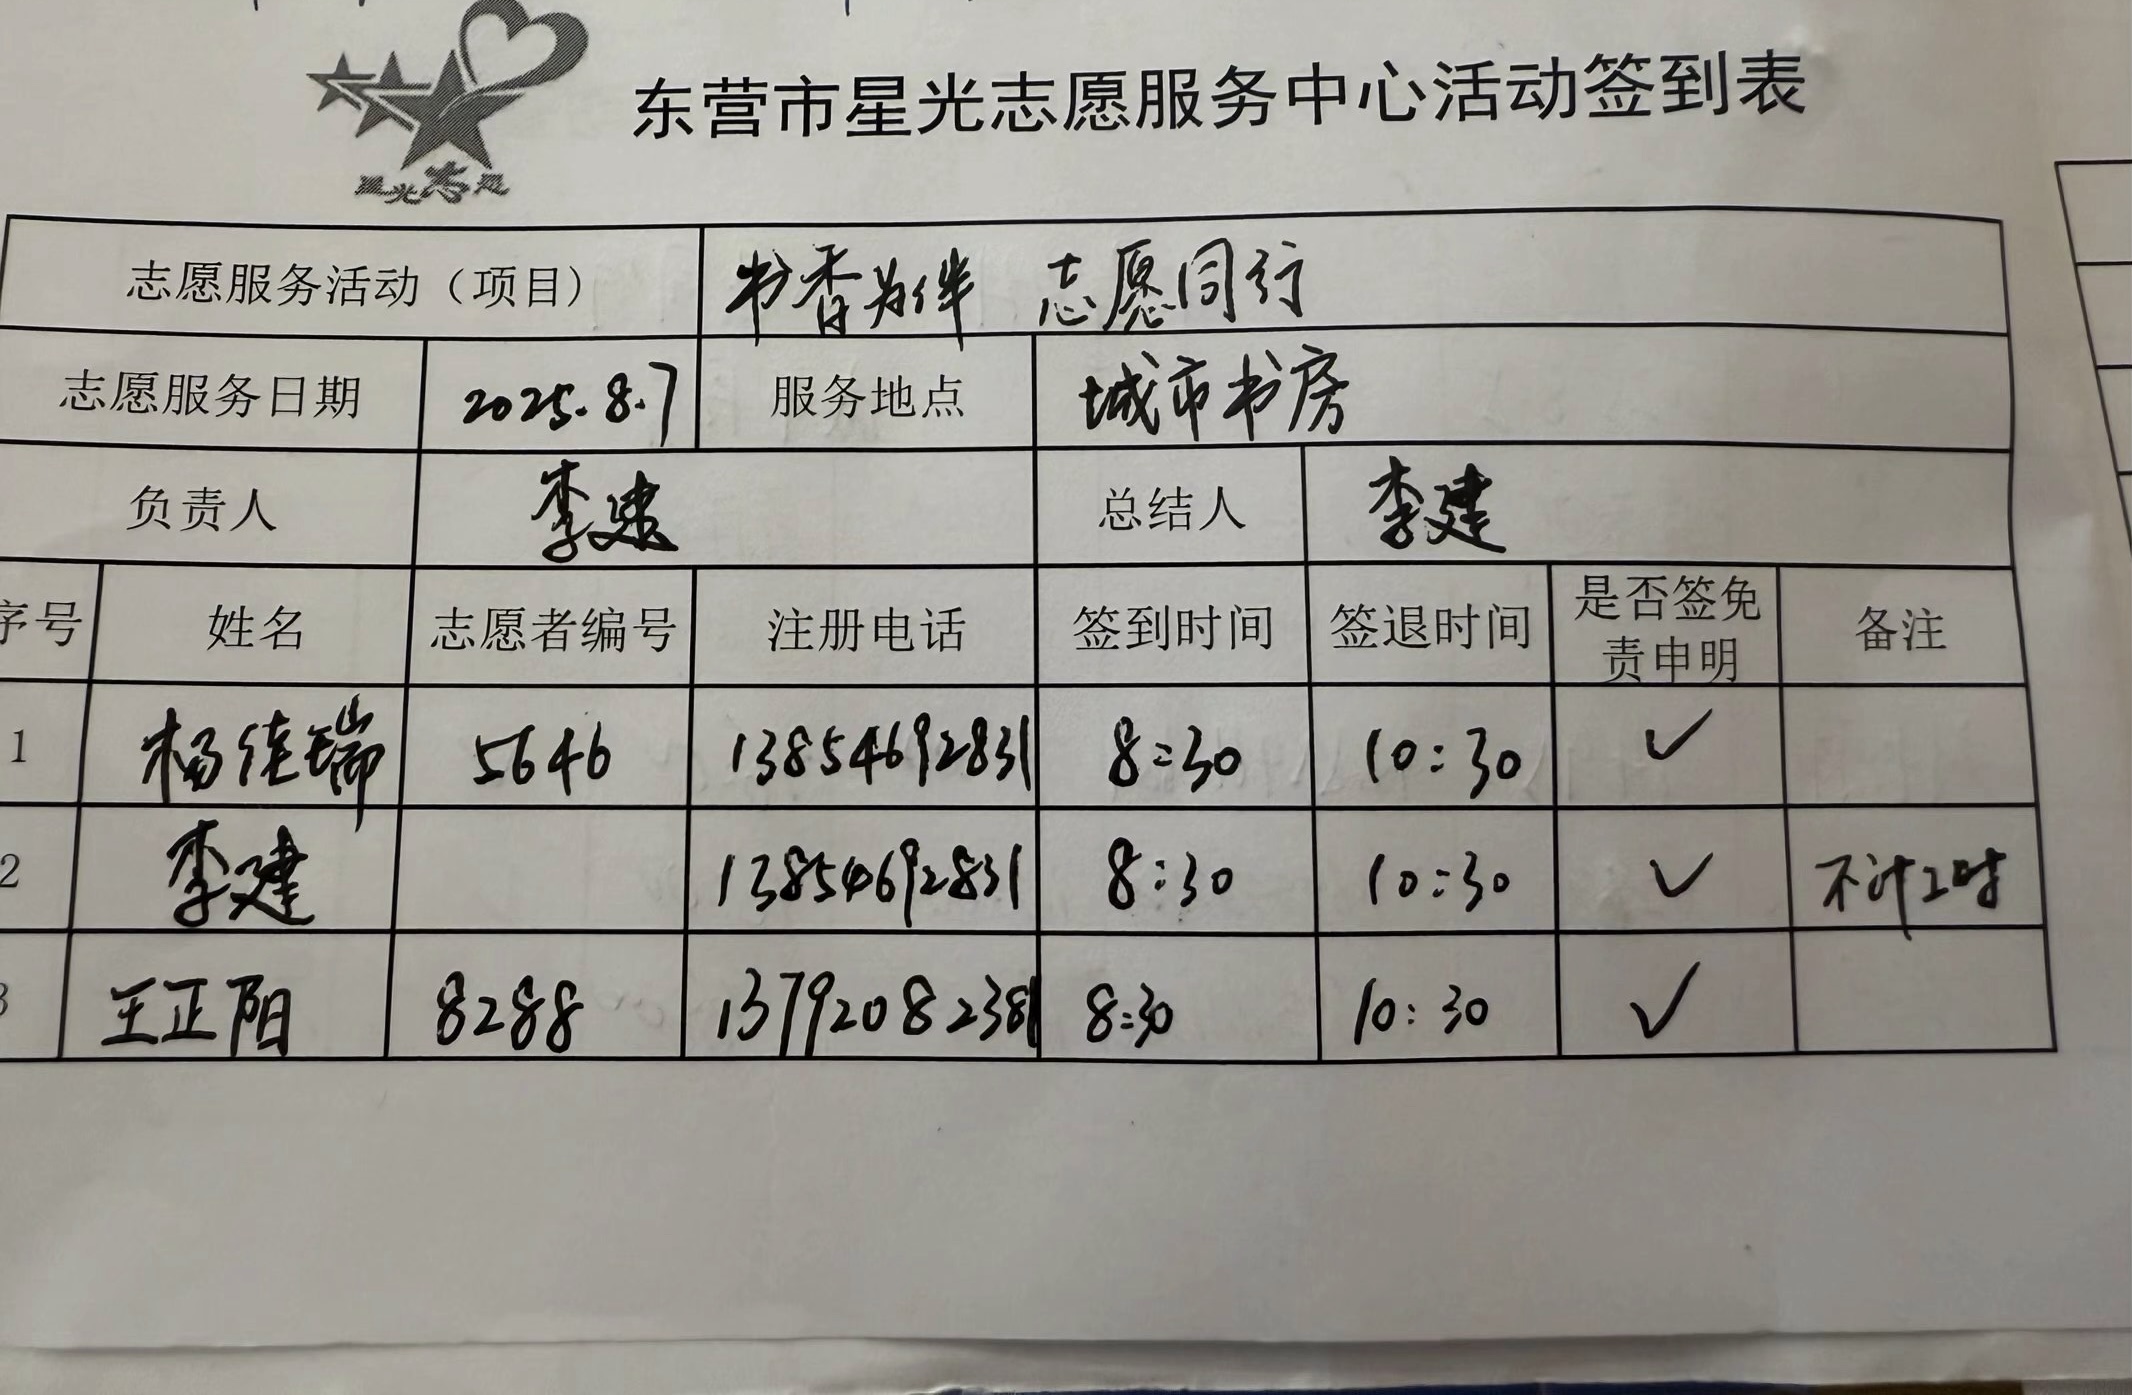 星光志愿
东营市星光志愿服务中心活动签到表
志愿服务活动（项目） 书香为伴 志愿同行
志愿服务日期 2025.8.7 服务地点 城市书房
负责人 李建 总结人 李建
序号 姓名 志愿者编号 注册电话 签到时间 签退时间 是否签免责申明 备注
1 杨佳瑞 5646 13854692831 8:30 10:30 ✓
2 李建 13854692831 8:30 10:30 ✓ 不计工时
3 王正阳 8288 13792082381 8:30 10:30 ✓